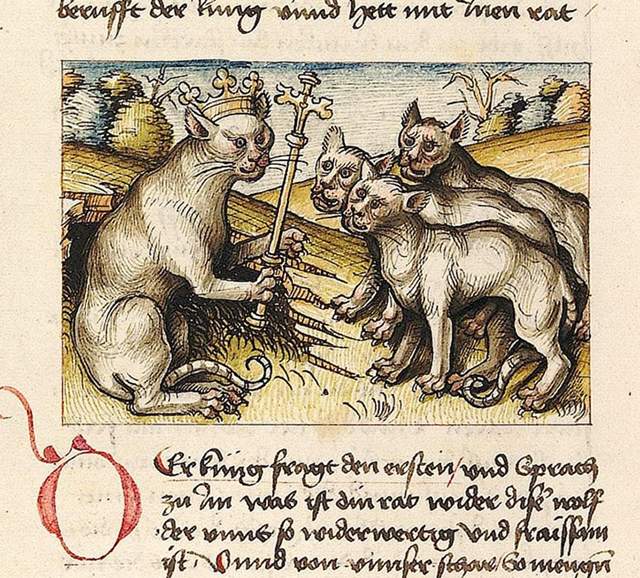 berufft der küng vnnd hett mit Inen rat /
Er küng fragt den ersten / vnd Sprach
zu Im was ist din rat wider dise wolf
der vnns so widerwertig vnd fraissam
ist / Vnnd von vnnser schar / So menegen